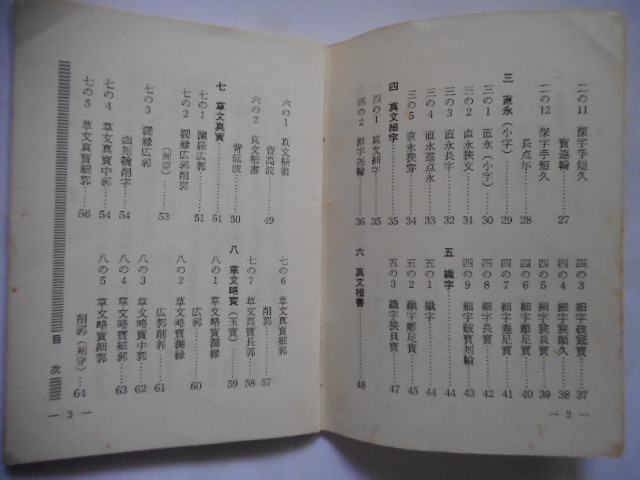 二の11 深字手短久
寶連輪……27
二の12 深字手短久
長点尓……28
三 直永（小字）……29
三の1 直永（小字）……30
三の2 直永狭文……31
三の3 直永長字……32
三の4 直永進点永……33
三の5 直永狭穿……34
四 真文細字……35
四の1 真文細字……35
四の2 細字刔輪……36
四の3 細字破冠寶……37
四の4 細字狭願久……38
四の5 細字狭貝寶……39
四の6 細字離足寶……40
四の7 細字垂足寶……41
四の8 細字長寶……42
四の9 細字破寶刔輪……43
五 繊字……44
五の1 繊字……44
五の2 繊字離足寶……45
五の3 繊字狭貝寶……47
六 真文楷書……48
— 2 —
六の1 真文楷書
背高波……49
六の2 真文楷書
背低波……50
七 草文真寶……51
七の1 濶縁広郭……51
七の2 濶縁広郭削郭
七の3 濶縁広郭
（刮穿）……53
面刔輪削字……54
七の4 草文真寶中郭……54
七の5 草文真寶細郭……56
七の6 草文真寶細郭
削郭……57
七の7 草文真寶長郭……58
八 草文略寶（玉寶）……59
八の1 草文略寶濶縁
広郭……60
八の2 草文略寶濶縁
広郭削郭……61
八の3 草文略寶中郭……62
八の4 草文略寶細郭……63
八の5 草文略寶細郭
削郭（刮穿）……64
目次
— 3 —